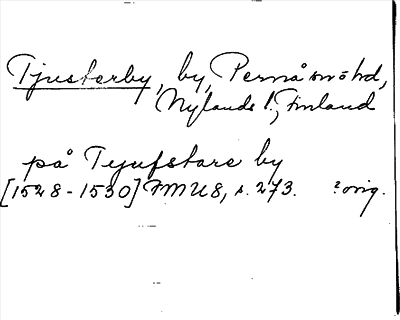 Tjusterby, by, Pernå sn o hd,
Nylands l., Finland
på Tejufstare by
[1528-1530] FMU 8, s. 273. ?orig.